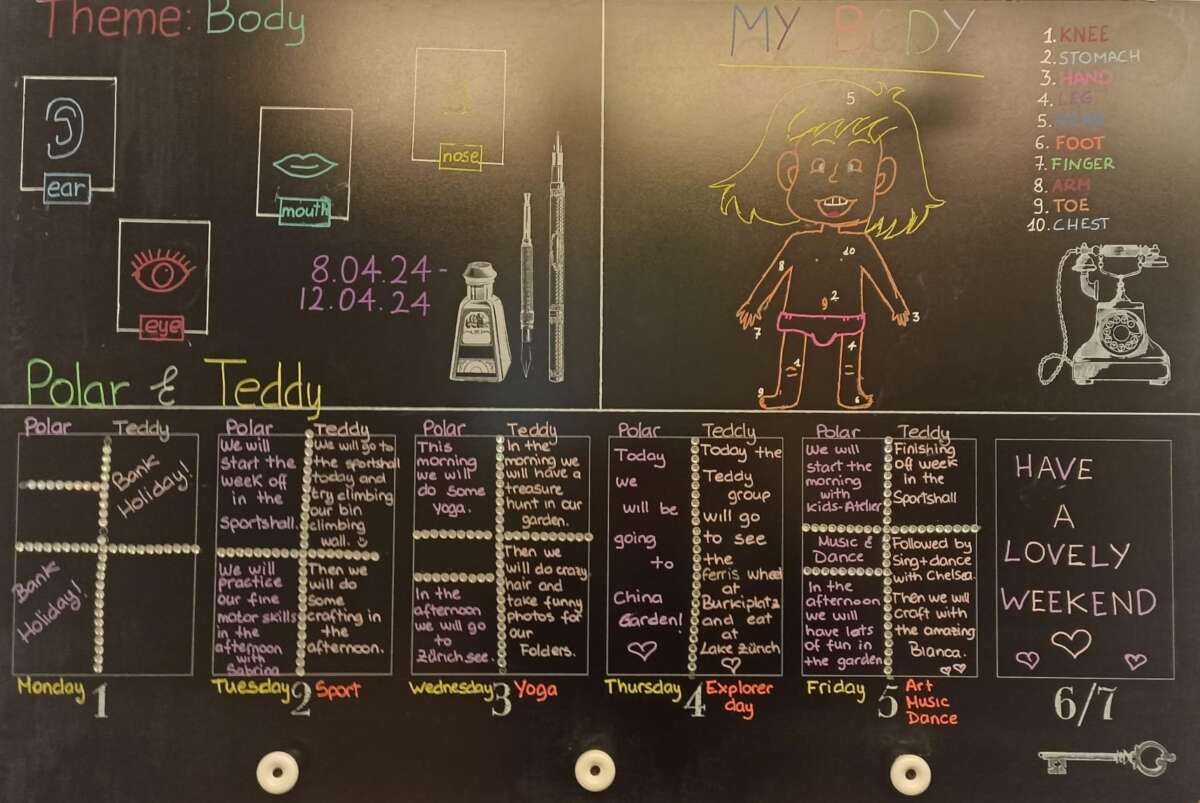 Theme: Body
ear
mouth
nose
eye
8.04.24-
12.04.24
MY BODY
5
10
8
2
9
3
7
4
1
9
6
1. KNEE
2. STOMACH
3. HAND
4. LEG
5.
6. FOOT
7. FINGER
8. ARM
9. TOE
10. CHEST
Polar & Teddy
Polar
Teddy
Bank
Holiday!
Bank
Holiday!
Monday 1
Polar
We will
start the
week off
in the
sportshall.
We will
practice
our fine
motor skills
in the
afternoon
with
Sabrina
Teddy
We will go to
the sportshall
today and
try climbing
our bin
climbing
wall.
Then we
will do
some
crafting in
the
afternoon.
Tuesday 2 Sport
Polar
This
morning
we will
do some
yoga.
In the
afternoon
we will go
to
Zürichsee.
Teddy
In the
morning we
will have a
treasure
hunt in our
garden.
Then we
will do crazy
hair and
take funny
photos for
our
Folders.
Wednesday 3 Yoga
Polar
Today
we
will be
going
to
China
Garden!
Teddy
Today the
Teddy
group
will go
to see
the
ferris wheel
at
Bürkliplatz
and eat
at
Lake Zürich
Thursday 4 Explorer
day
Polar
We will
start the
morning
with
Kids-Atelier
Music &
Dance
In the
afternoon
we will
have lots
of fun in
the garden
Teddy
Finishing
off week
in the
Sportshall
Followed by
Sing+dance
with Chelsea.
Then we will
craft with
the amazing
Bianca.
Friday 5 Art
Music
Dance
HAVE
A
LOVELY
WEEKEND
6/7